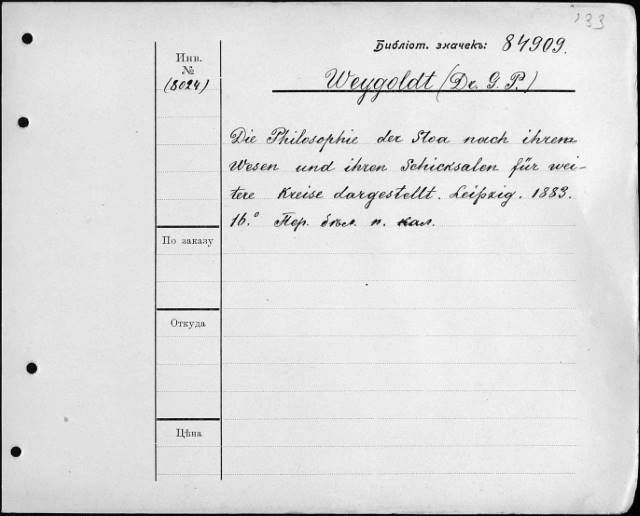 133
Библіот. значекъ: 84909.
Инв.
№
(8024)
Weygoldt (Dr. G. P.)
Die Philosophie der Stoa nach ihrem
Wesen und ihren Schicksalen für wei-
tere Kreise dargestellt. Leipzig. 1883.
16.° Пер. бѣл. п. кал.
По заказу
Откуда
Цѣна